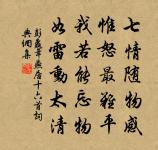 七情隨物感
惟怒最難平
我若能忘物
如雷動太清
彭蠡章燕居十六首詞
典網集